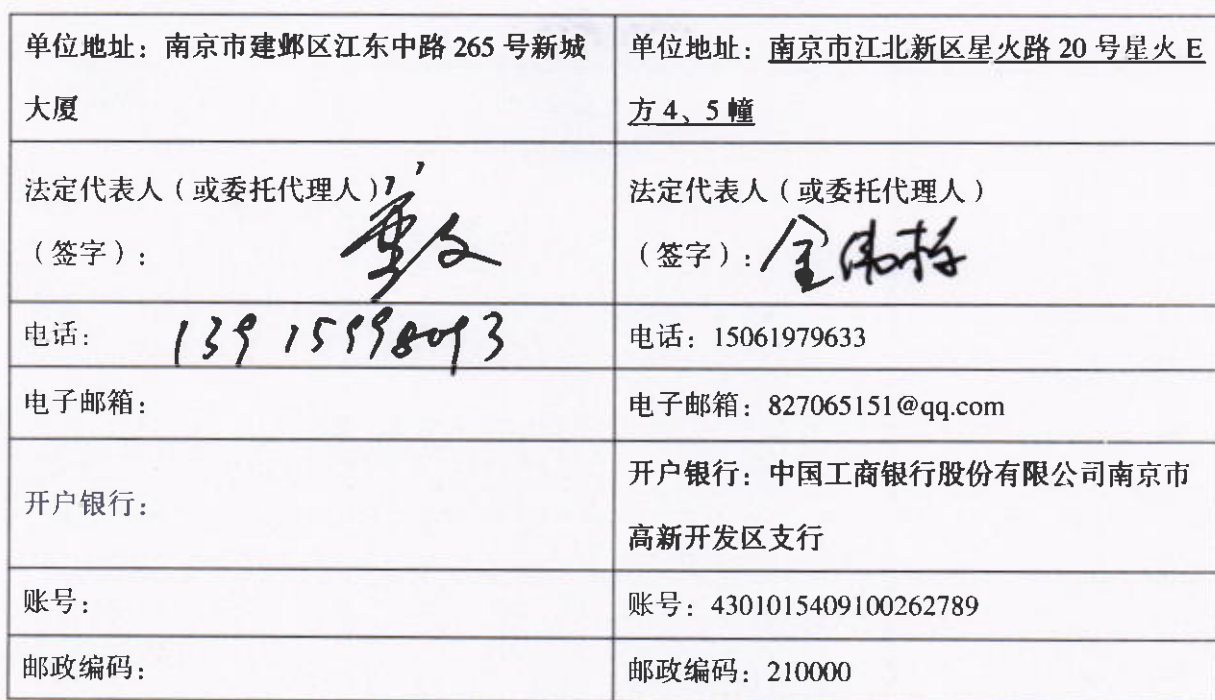 单位地址：南京市建邺区江东中路 265 号新城
大厦
单位地址：南京市江北新区星火路 20 号星火 E
方 4、5 幢
法定代表人（或委托代理人）
（签字）：
法定代表人（或委托代理人）
（签字）：金伟栋
电话： 13915998093
电话：15061979633
电子邮箱：
电子邮箱：827065151@qq.com
开户银行：
开户银行：中国工商银行股份有限公司南京市
高新开发区支行
账号：
账号：4301015409100262789
邮政编码：
邮政编码：210000